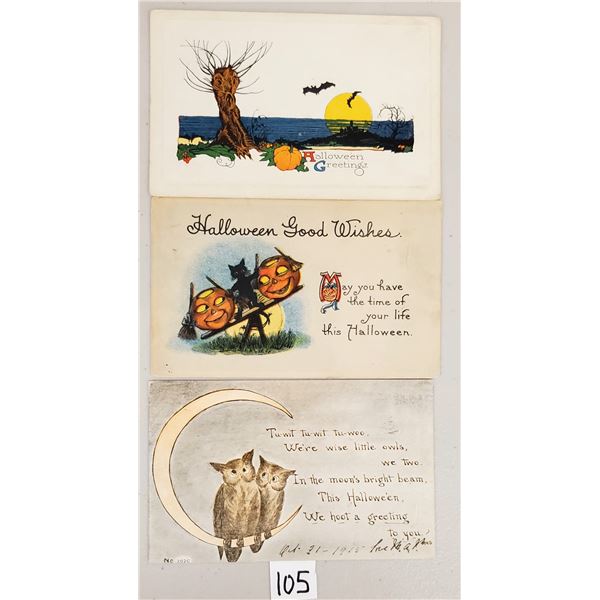 Halloween
Greetings
Halloween Good Wishes.
May you have
the time of
your life
this Halloween.
Tu-wit tu-wit tu-woo,
We're wise little owls,
we two.
In the moon's bright beam,
This Hallowe'en,
We hoot a greeting
to you.
Oct. 31-1915
No
105